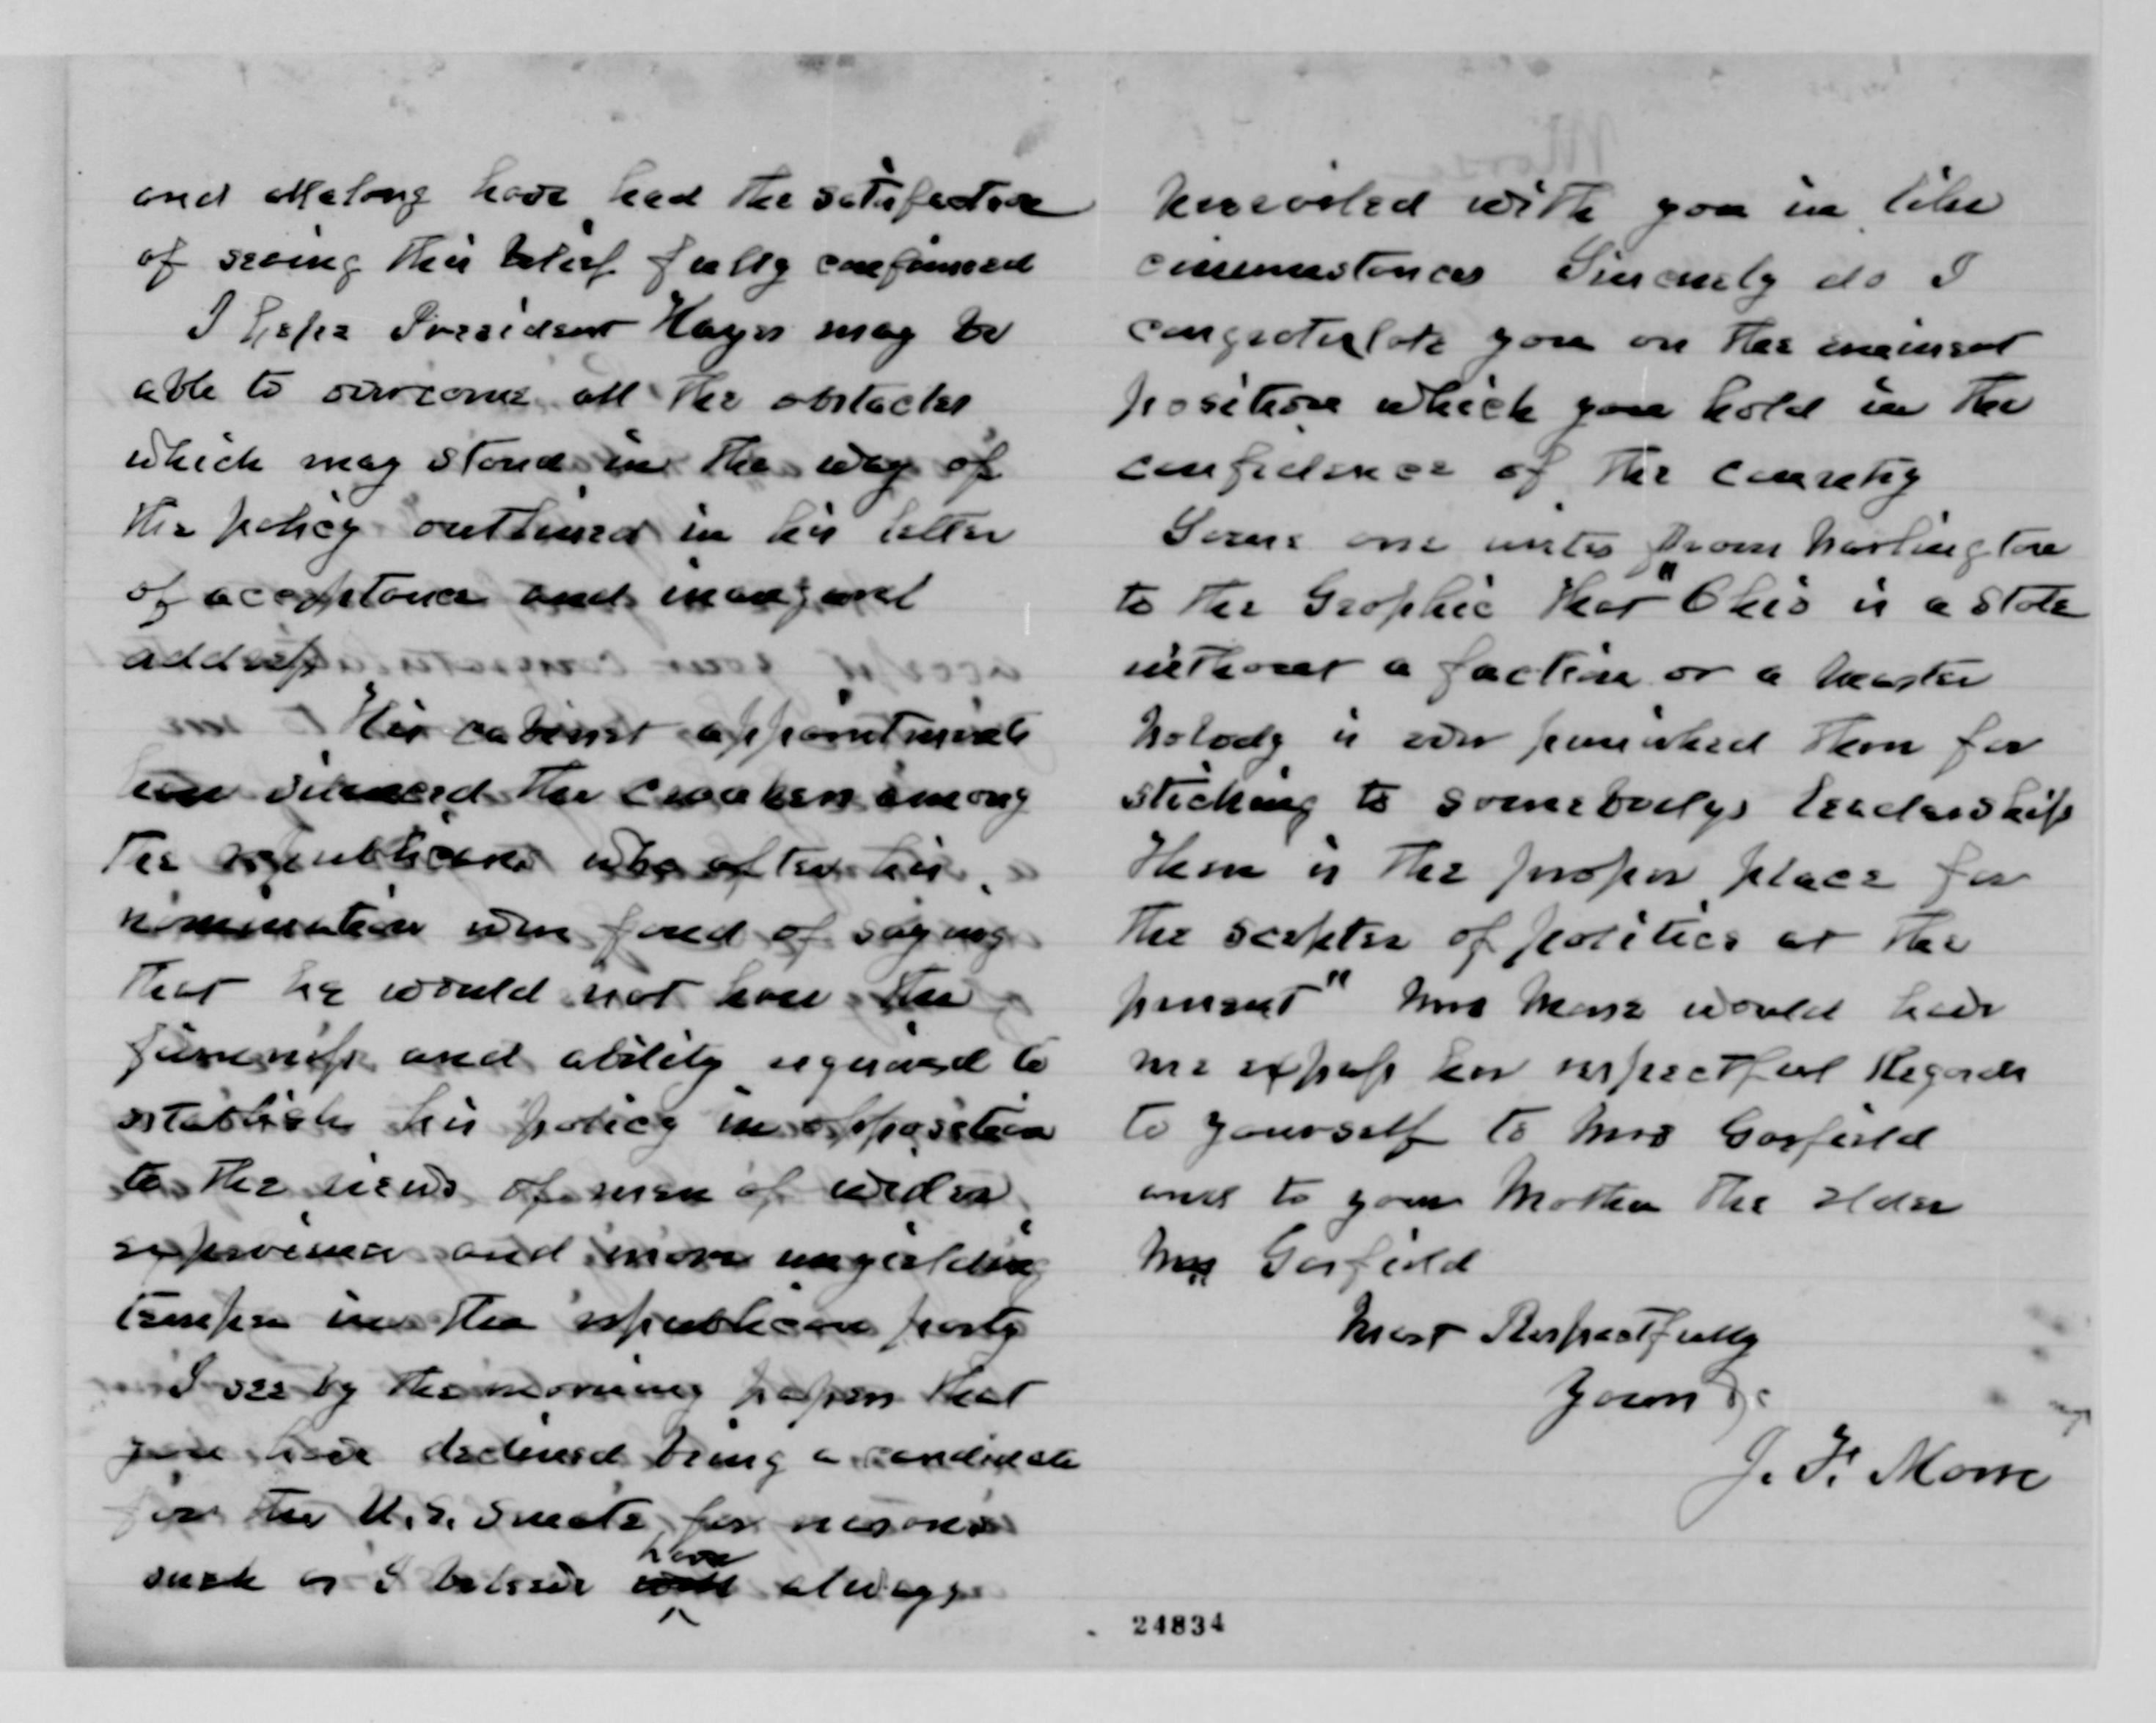 and all along have had the satisfaction
of seeing this belief fully confirmed
I hope President Hayes may be
able to overcome all the obstacles
which may stand in the way of
the policy outlined in his letter
of acceptance and inaugural
address
His cabinet appointments
have silenced the croakers among
the republicans who after his
nomination were fond of saying
that he would not have the
firmness and ability required to
establish his policy in opposition
to the views of men of wider
experience and more unyielding
temper in the republican party
I see by the morning papers that
you have declined being a candidate
for the U.S. Senate for reasons
such as I believe have always
prevailed with you in like
circumstances Sincerely do I
congratulate you on the eminent
position which you hold in the
confidence of the country
Some one writes from Washington
to the Graphic that "Ohio is a state
without a faction or a master
Nobody is ever punished there for
sticking to somebodys leadership
There is the proper place for
the scepter of politics at the
present" Mrs Morse would have
me express her respectful Regards
to yourself to Mrs Garfield
and to your Mother the elder
Mrs Garfield
Most Respectfully
Yours &c
J. F. Morse
24834